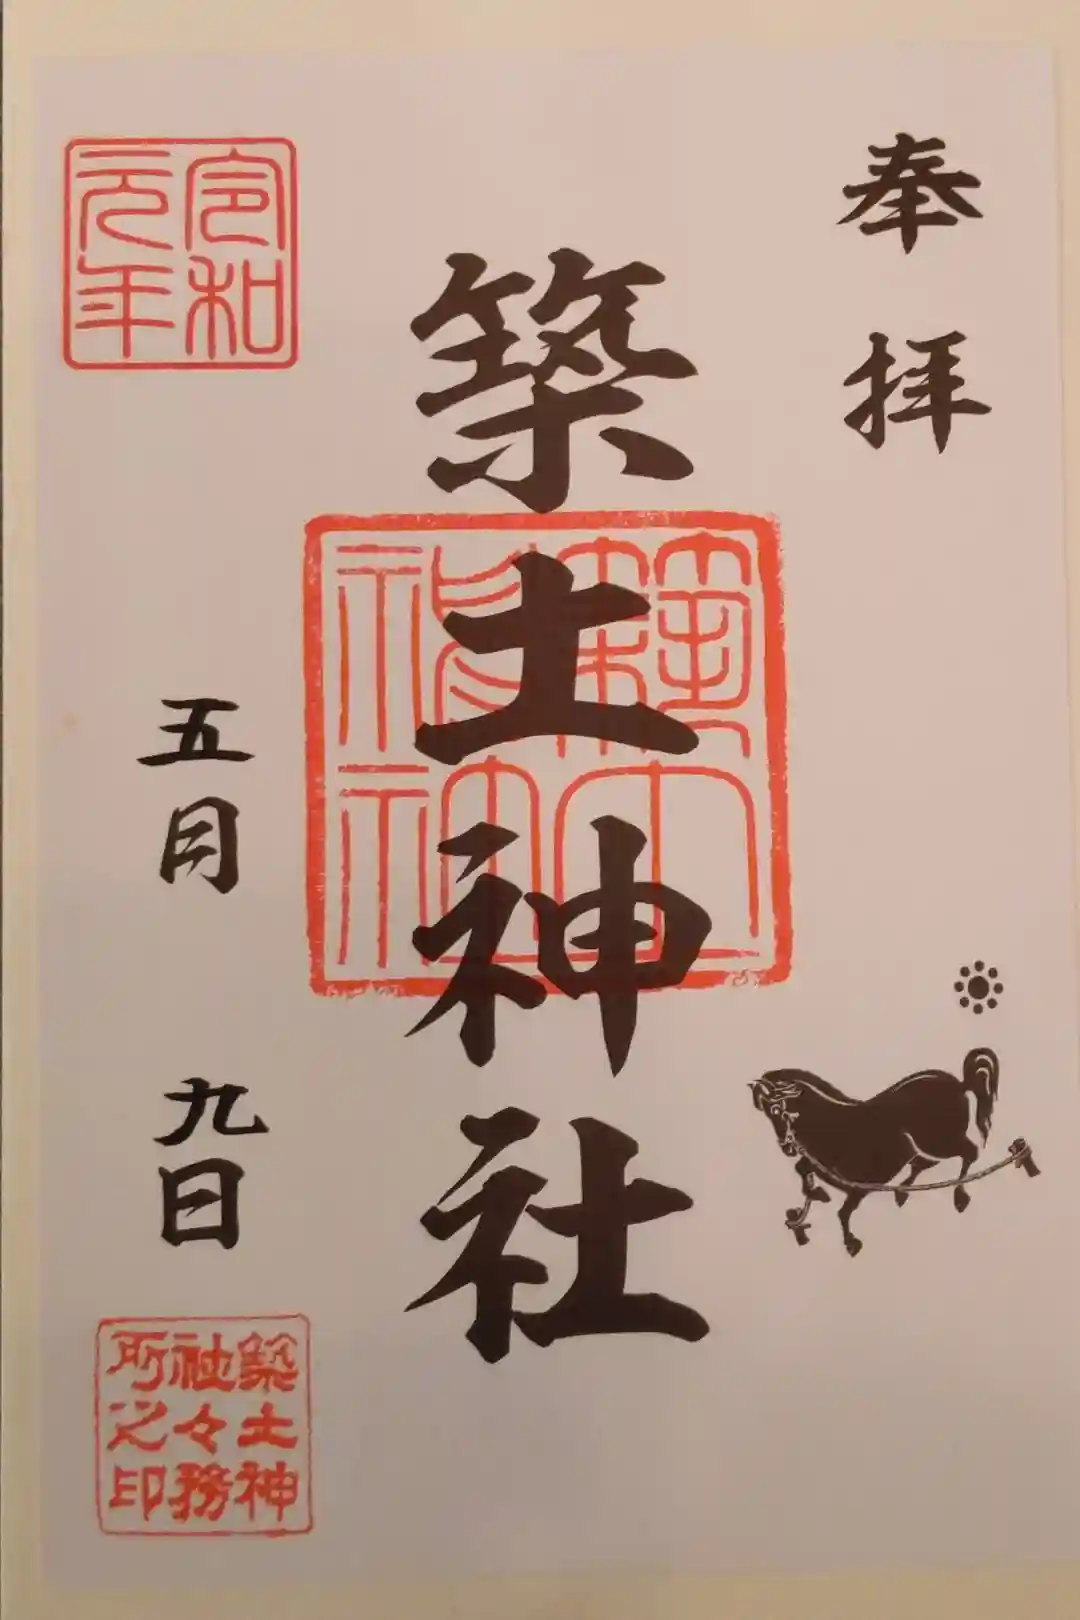 奉拝
築土神社
令和
元年
五月九日
築土神
社々務
所之印
築土
神社